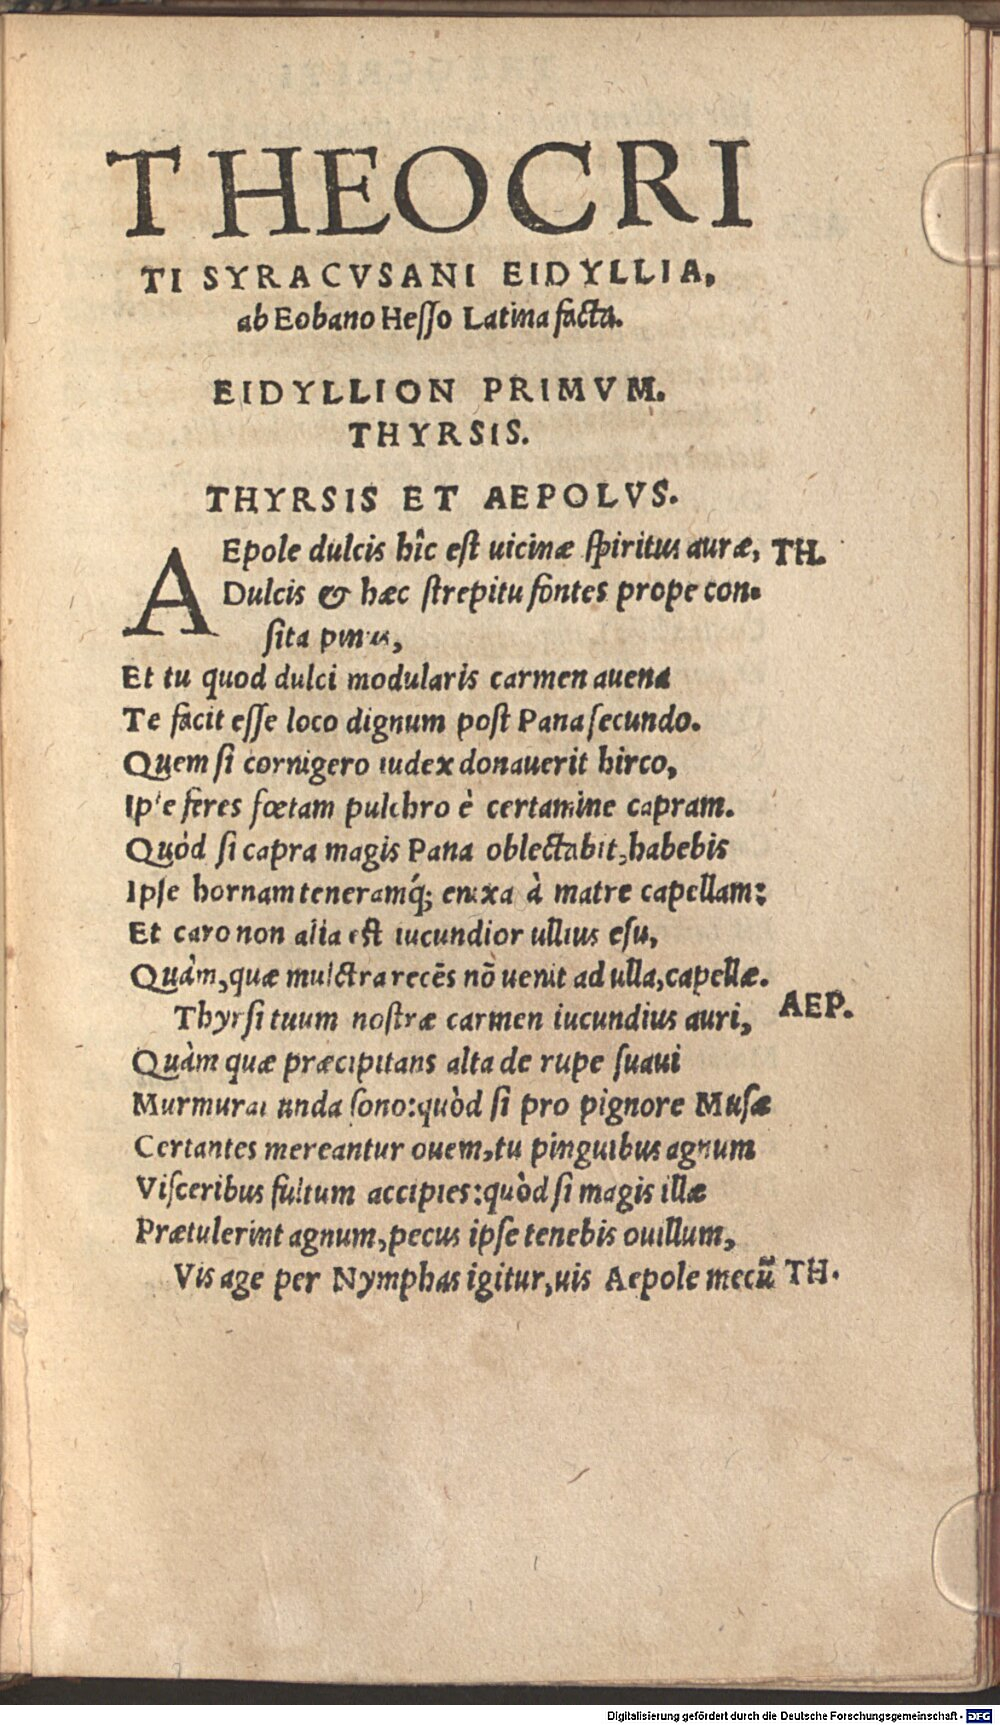 THEOCRI
TI SYRACVSANI EIDYLLIA,
ab Eobano Hesso Latina facta.
EIDYLLION PRIMVM.
THYRSIS.
THYRSIS ET AEPOLVS.
AEpole dulcis hîc est uicinæ spiritus auræ, TH.
Dulcis & hæc strepitu fontes prope con-
sita pinus,
Et tu quod dulci modularis carmen auena
Te facit esse loco dignum post Pana secundo.
Quem si cornigero iudex donauerit hirco,
Ipse feres fœtam pulchro è certamine capram.
Quòd si capra magis Pana oblectabit, habebis
Ipse hornam teneramq́; enixa à matre capellam:
Et caro non alia est iucundior ullius esu,
Quàm, quæ mulctra recēs nō uenit ad ulla, capellæ.
Thyrsi tuum nostræ carmen iucundius auri, AEP.
Quàm quæ præcipitans alta de rupe suaui
Murmurat unda sono: quòd si pro pignore Musæ
Certantes mereantur ouem, tu pinguibus agnum
Visceribus fultum accipies: quòd si magis illæ
Prætulerint agnum, pecus ipse tenebis ouillum,
Vis age per Nymphas igitur, uis Aepole mecū TH.
Digitalisierung gefördert durch die Deutsche Forschungsgemeinschaft - DFG